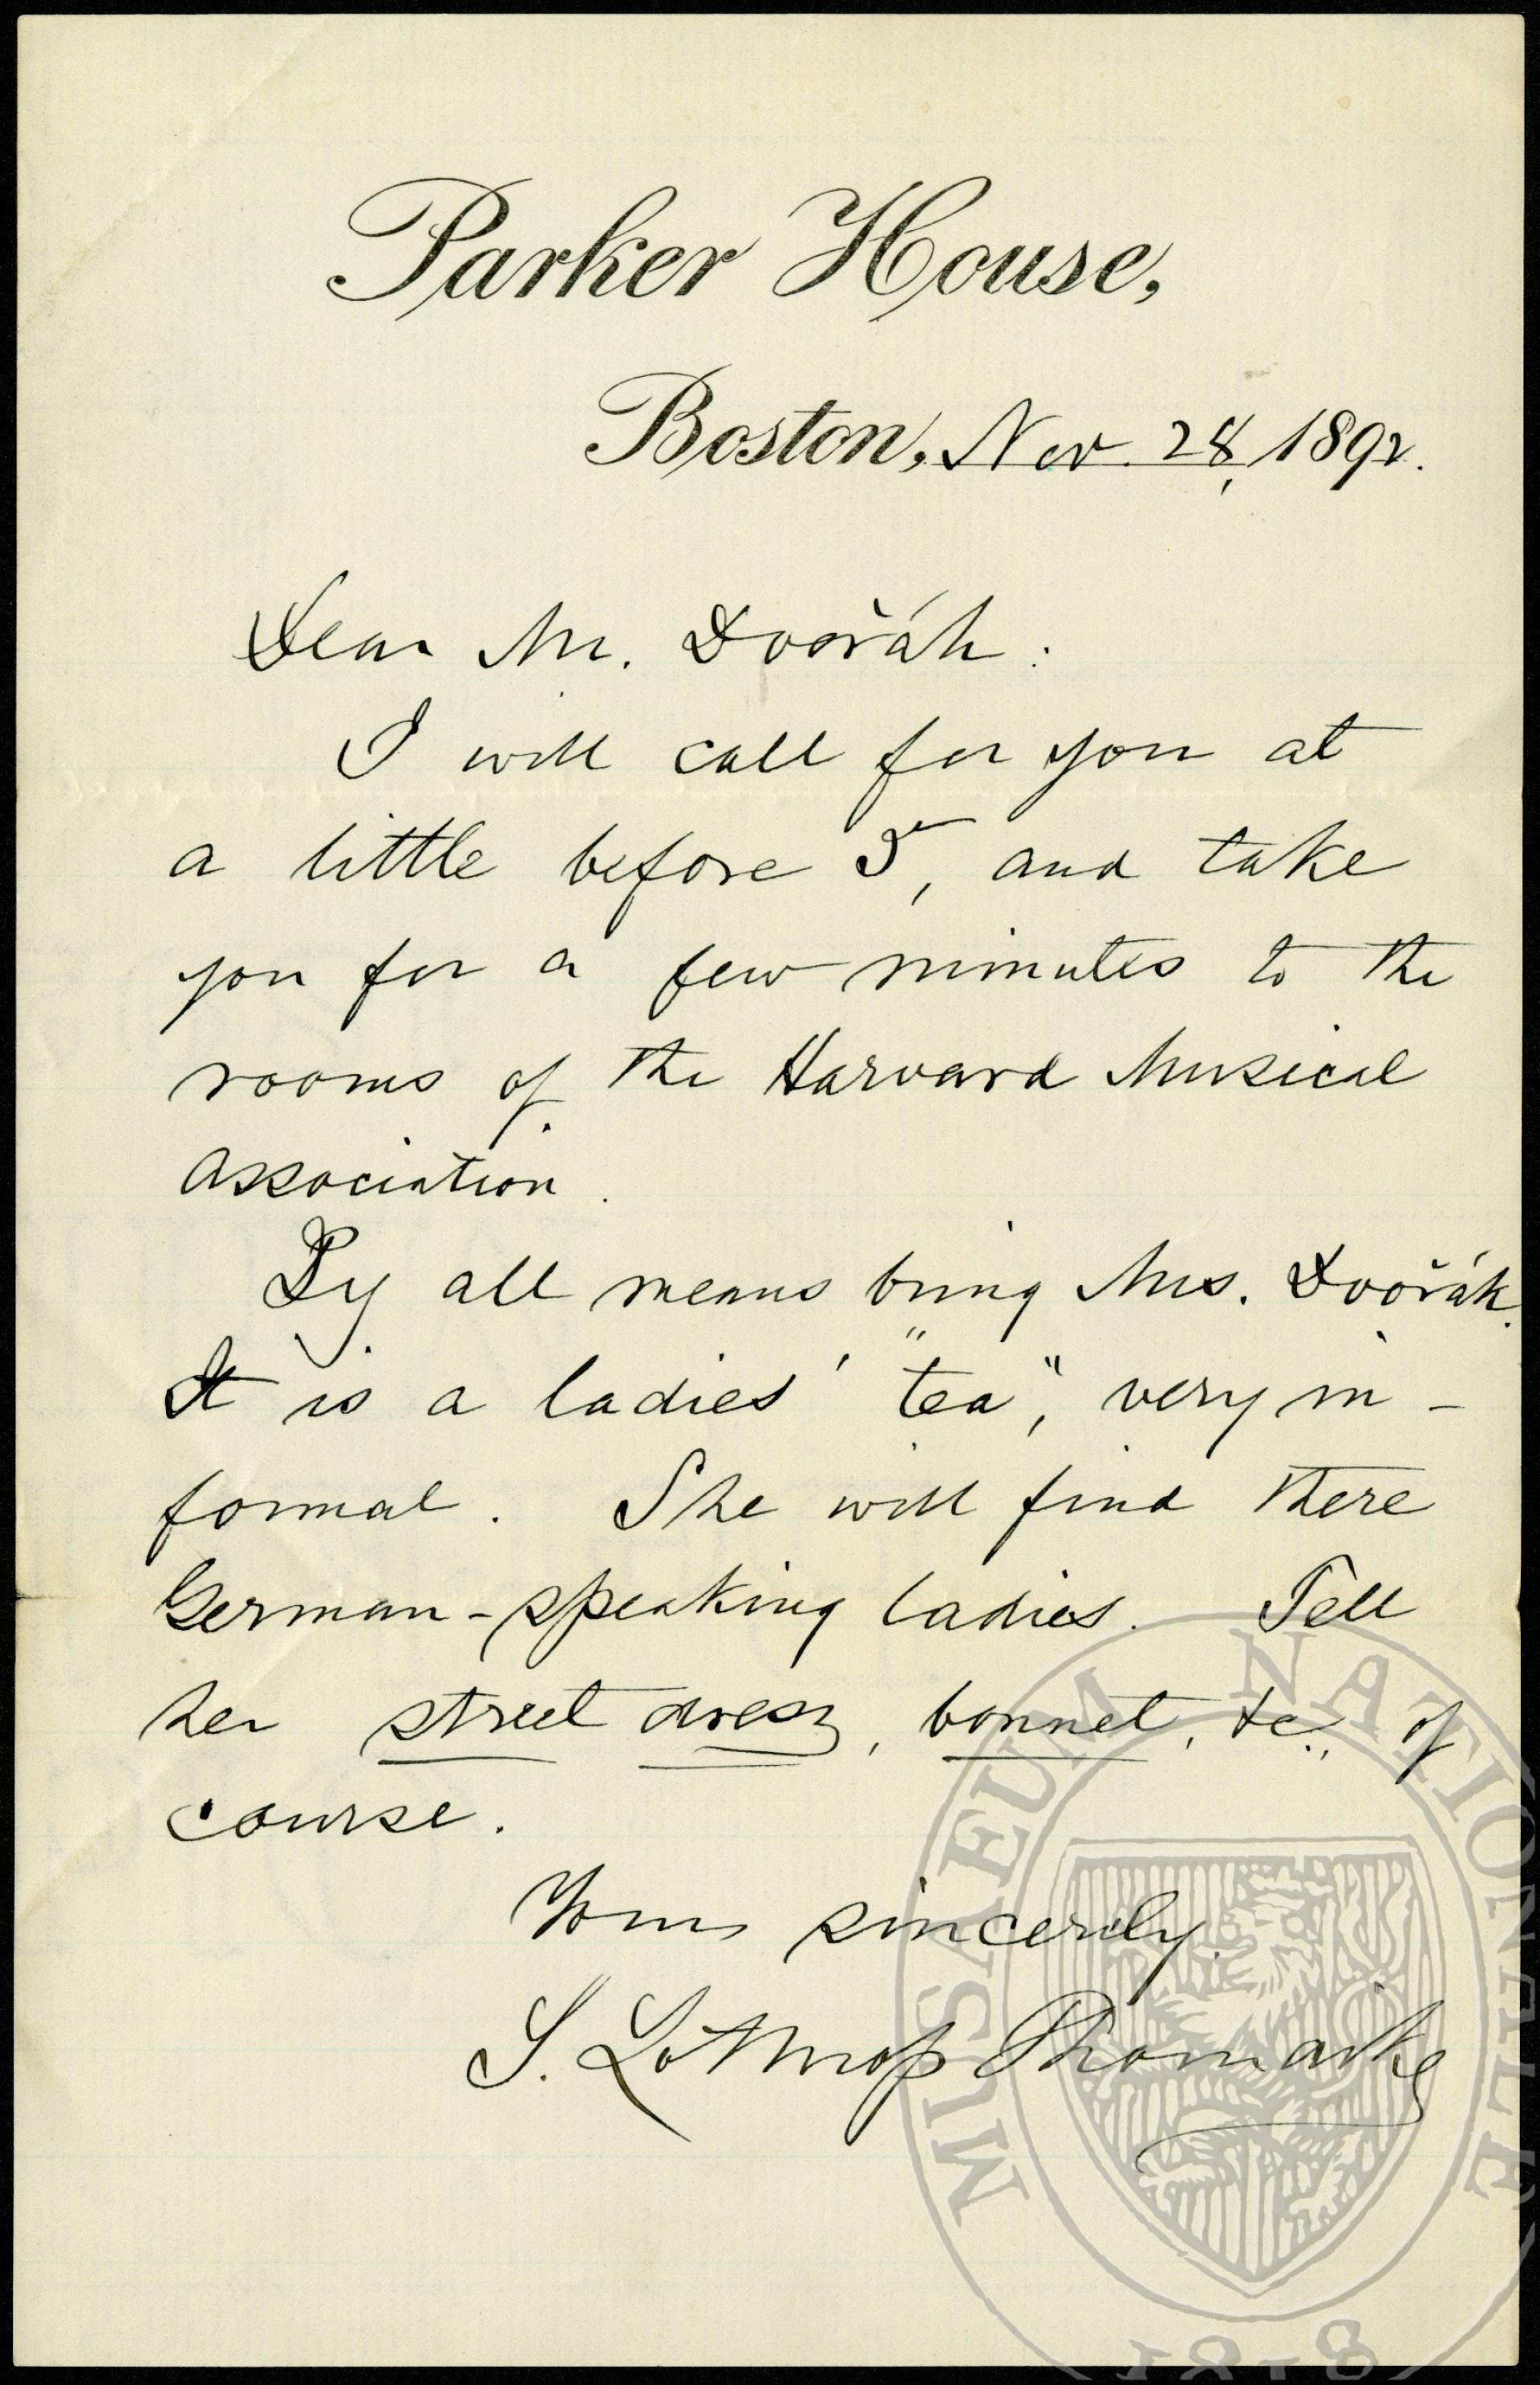 Parker House,
Boston, Nov. 28, 1892.
Dear Mr. Dvořák:
I will call for you at
a little before 5, and take
you for a few minutes to the
rooms of the Harvard Musical
Association.
By all means bring Mrs. Dvořák.
It is a ladies' "tea", very in-
formal. She will find there
German-speaking ladies. Tell
her street dress, bonnet, &c., of
course.
Yours sincerely,
S. Lothrop Thorndike
MUSAEUM NATIONALE
1818